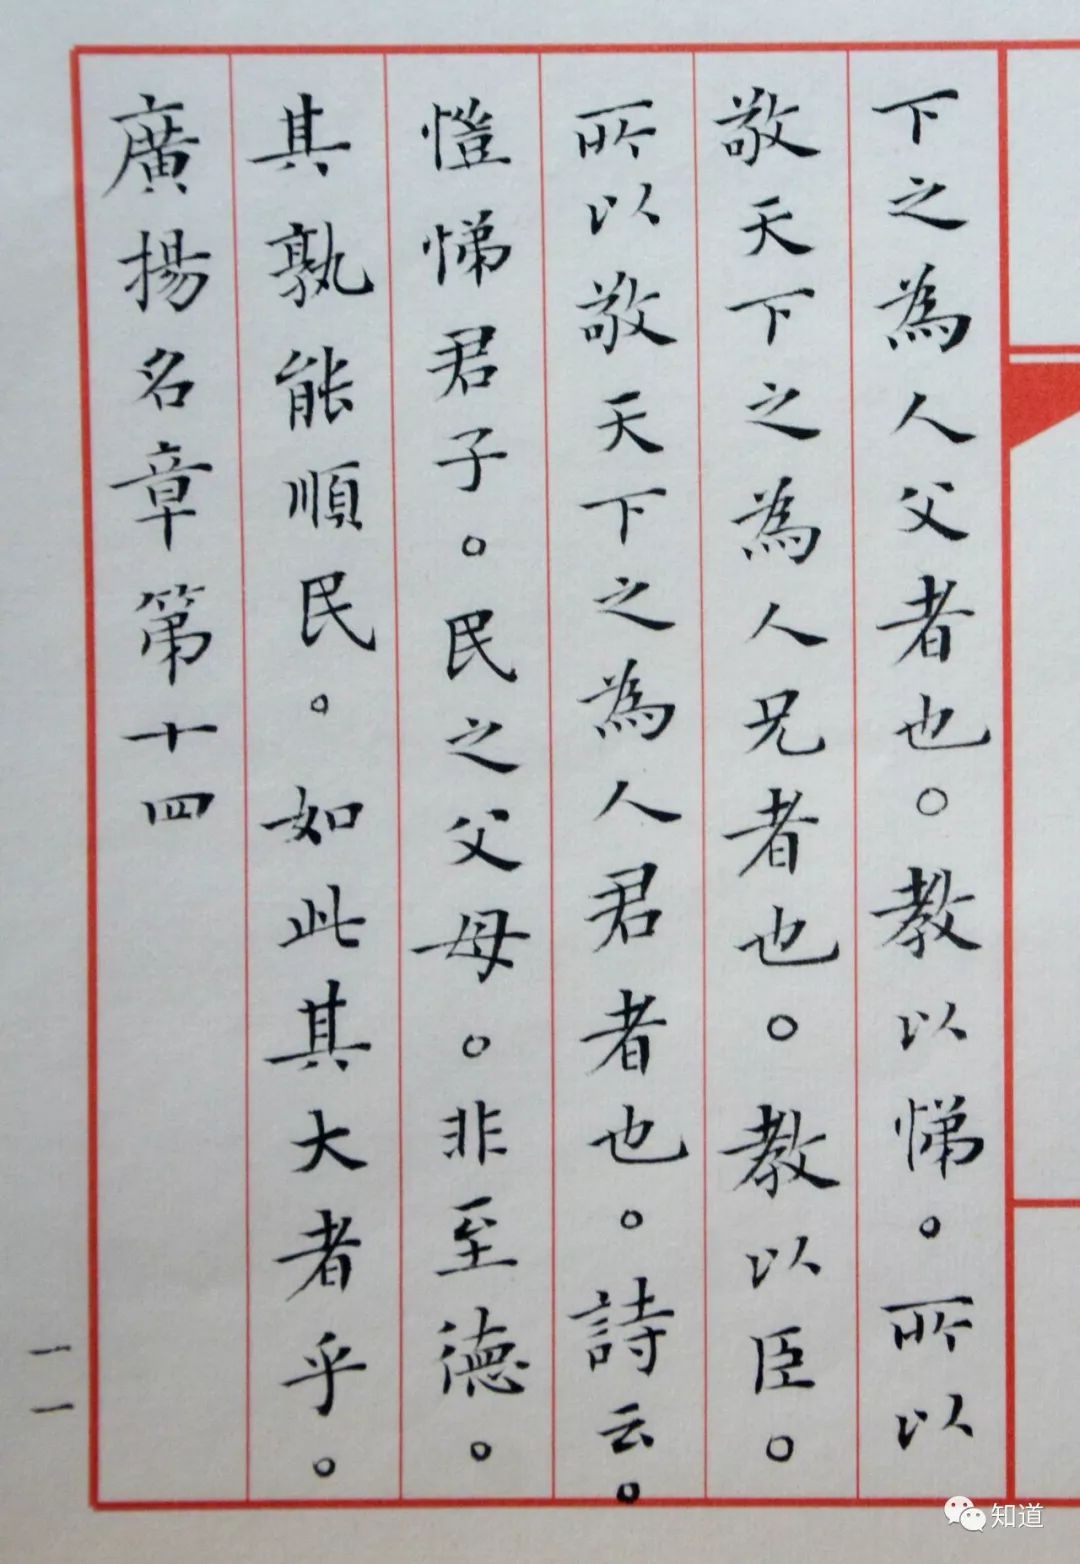 下之為人父者也。教以悌。所以
敬天下之為人兄者也。教以臣。
所以敬天下之為人君者也。詩云。
愷悌君子。民之父母。非至德。
其孰能順民。如此其大者乎。
廣揚名章第十四
一一
知道